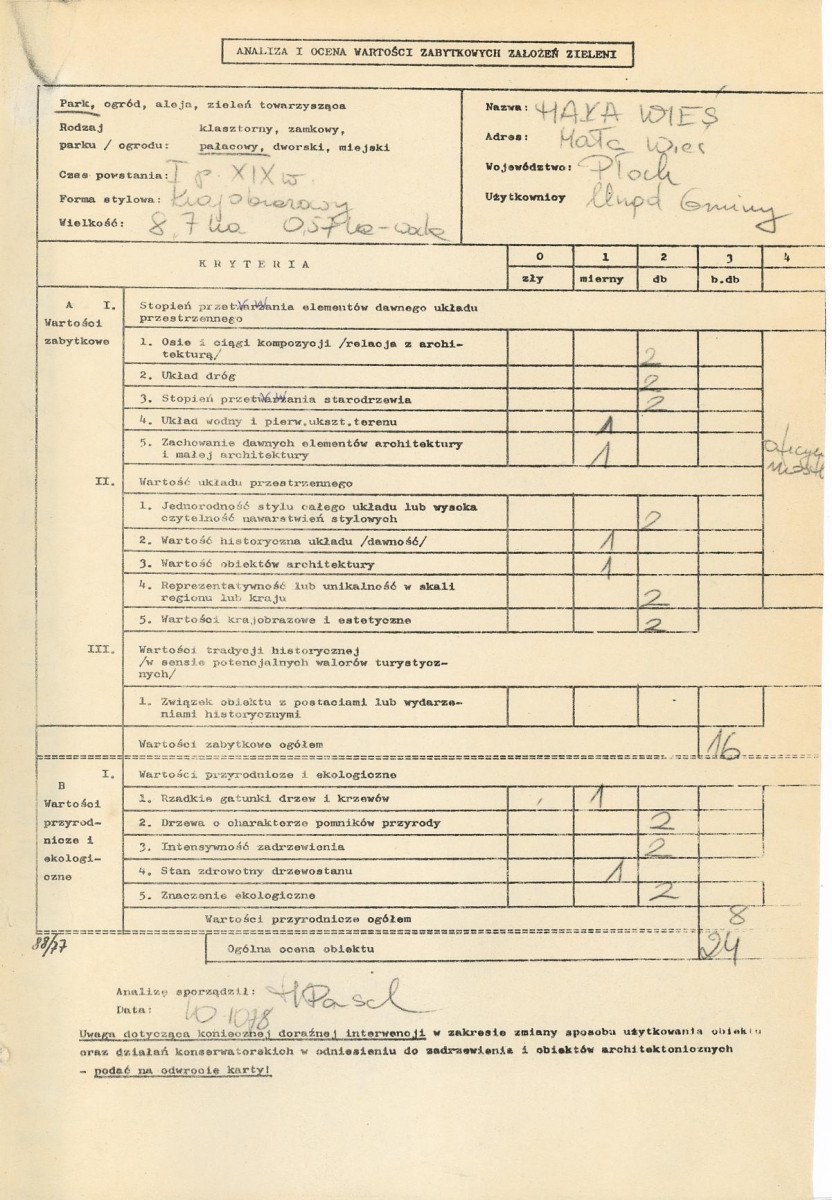 ANALIZA I OCENA WARTOŚCI ZABYTKOWYCH ZAŁOŻEŃ ZIELENI
Park, ogród, aleja, zieleń towarzysząca
Rodzaj klasztorny, zamkowy,
parku / ogrodu: pałacowy, dworski, miejski
Czas powstania: I p. XIX w.
Forma stylowa: Krajobrazowy
Wielkość: 8,7 ha 0,57 ha - woda
Nazwa: MAŁA WIEŚ
Adres: Mała Wieś
Województwo: Płock
Użytkownicy Urząd Gminy
KRYTERIA
0 1 2 3 4
zły mierny db b.db
A I.
Wartości
zabytkowe
Stopień przetwarzania elementów dawnego układu
przestrzennego
1. Osie i ciągi kompozycji /relacja z archi-
tekturą/ 2
2. Układ dróg 2
3. Stopień przetwarzania starodrzewia 2
4. Układ wodny i pierw.ukszt.terenu 1
5. Zachowanie dawnych elementów architektury
i małej architektury 1
II. Wartość układu przestrzennego
1. Jednorodność stylu całego układu lub wysoka
czytelność nawarstwień stylowych 2
2. Wartość historyczna układu /dawność/ 1
3. Wartość obiektów architektury 1
4. Reprezentatywność lub unikalność w skali
regionu lub kraju 2
5. Wartości krajobrazowe i estetyczne 2
III. Wartości tradycji historycznej
/w sensie potencjalnych walorów turystycz-
nych/
1. Związek obiektu z postaciami lub wydarze-
niami historycznymi
Wartości zabytkowe ogółem 16
B I.
Wartości
przyrod-
nicze i
ekologi-
czne
Wartości przyrodnicze i ekologiczne
1. Rzadkie gatunki drzew i krzewów 1
2. Drzewa o charakterze pomników przyrody 2
3. Intensywność zadrzewienia 2
4. Stan zdrowotny drzewostanu 1
5. Znaczenie ekologiczne 2
Wartości przyrodnicze ogółem 8
88/77
Ogólna ocena obiektu 24
Analizę sporządził:
Data: 10.1078
Uwaga dotycząca koniecznej doraźnej interwencji w zakresie zmiany sposobu użytkowania obiektu
oraz działań konserwatorskich w odniesieniu do zadrzewienia i obiektów architektonicznych
- podać na odwrocie karty!